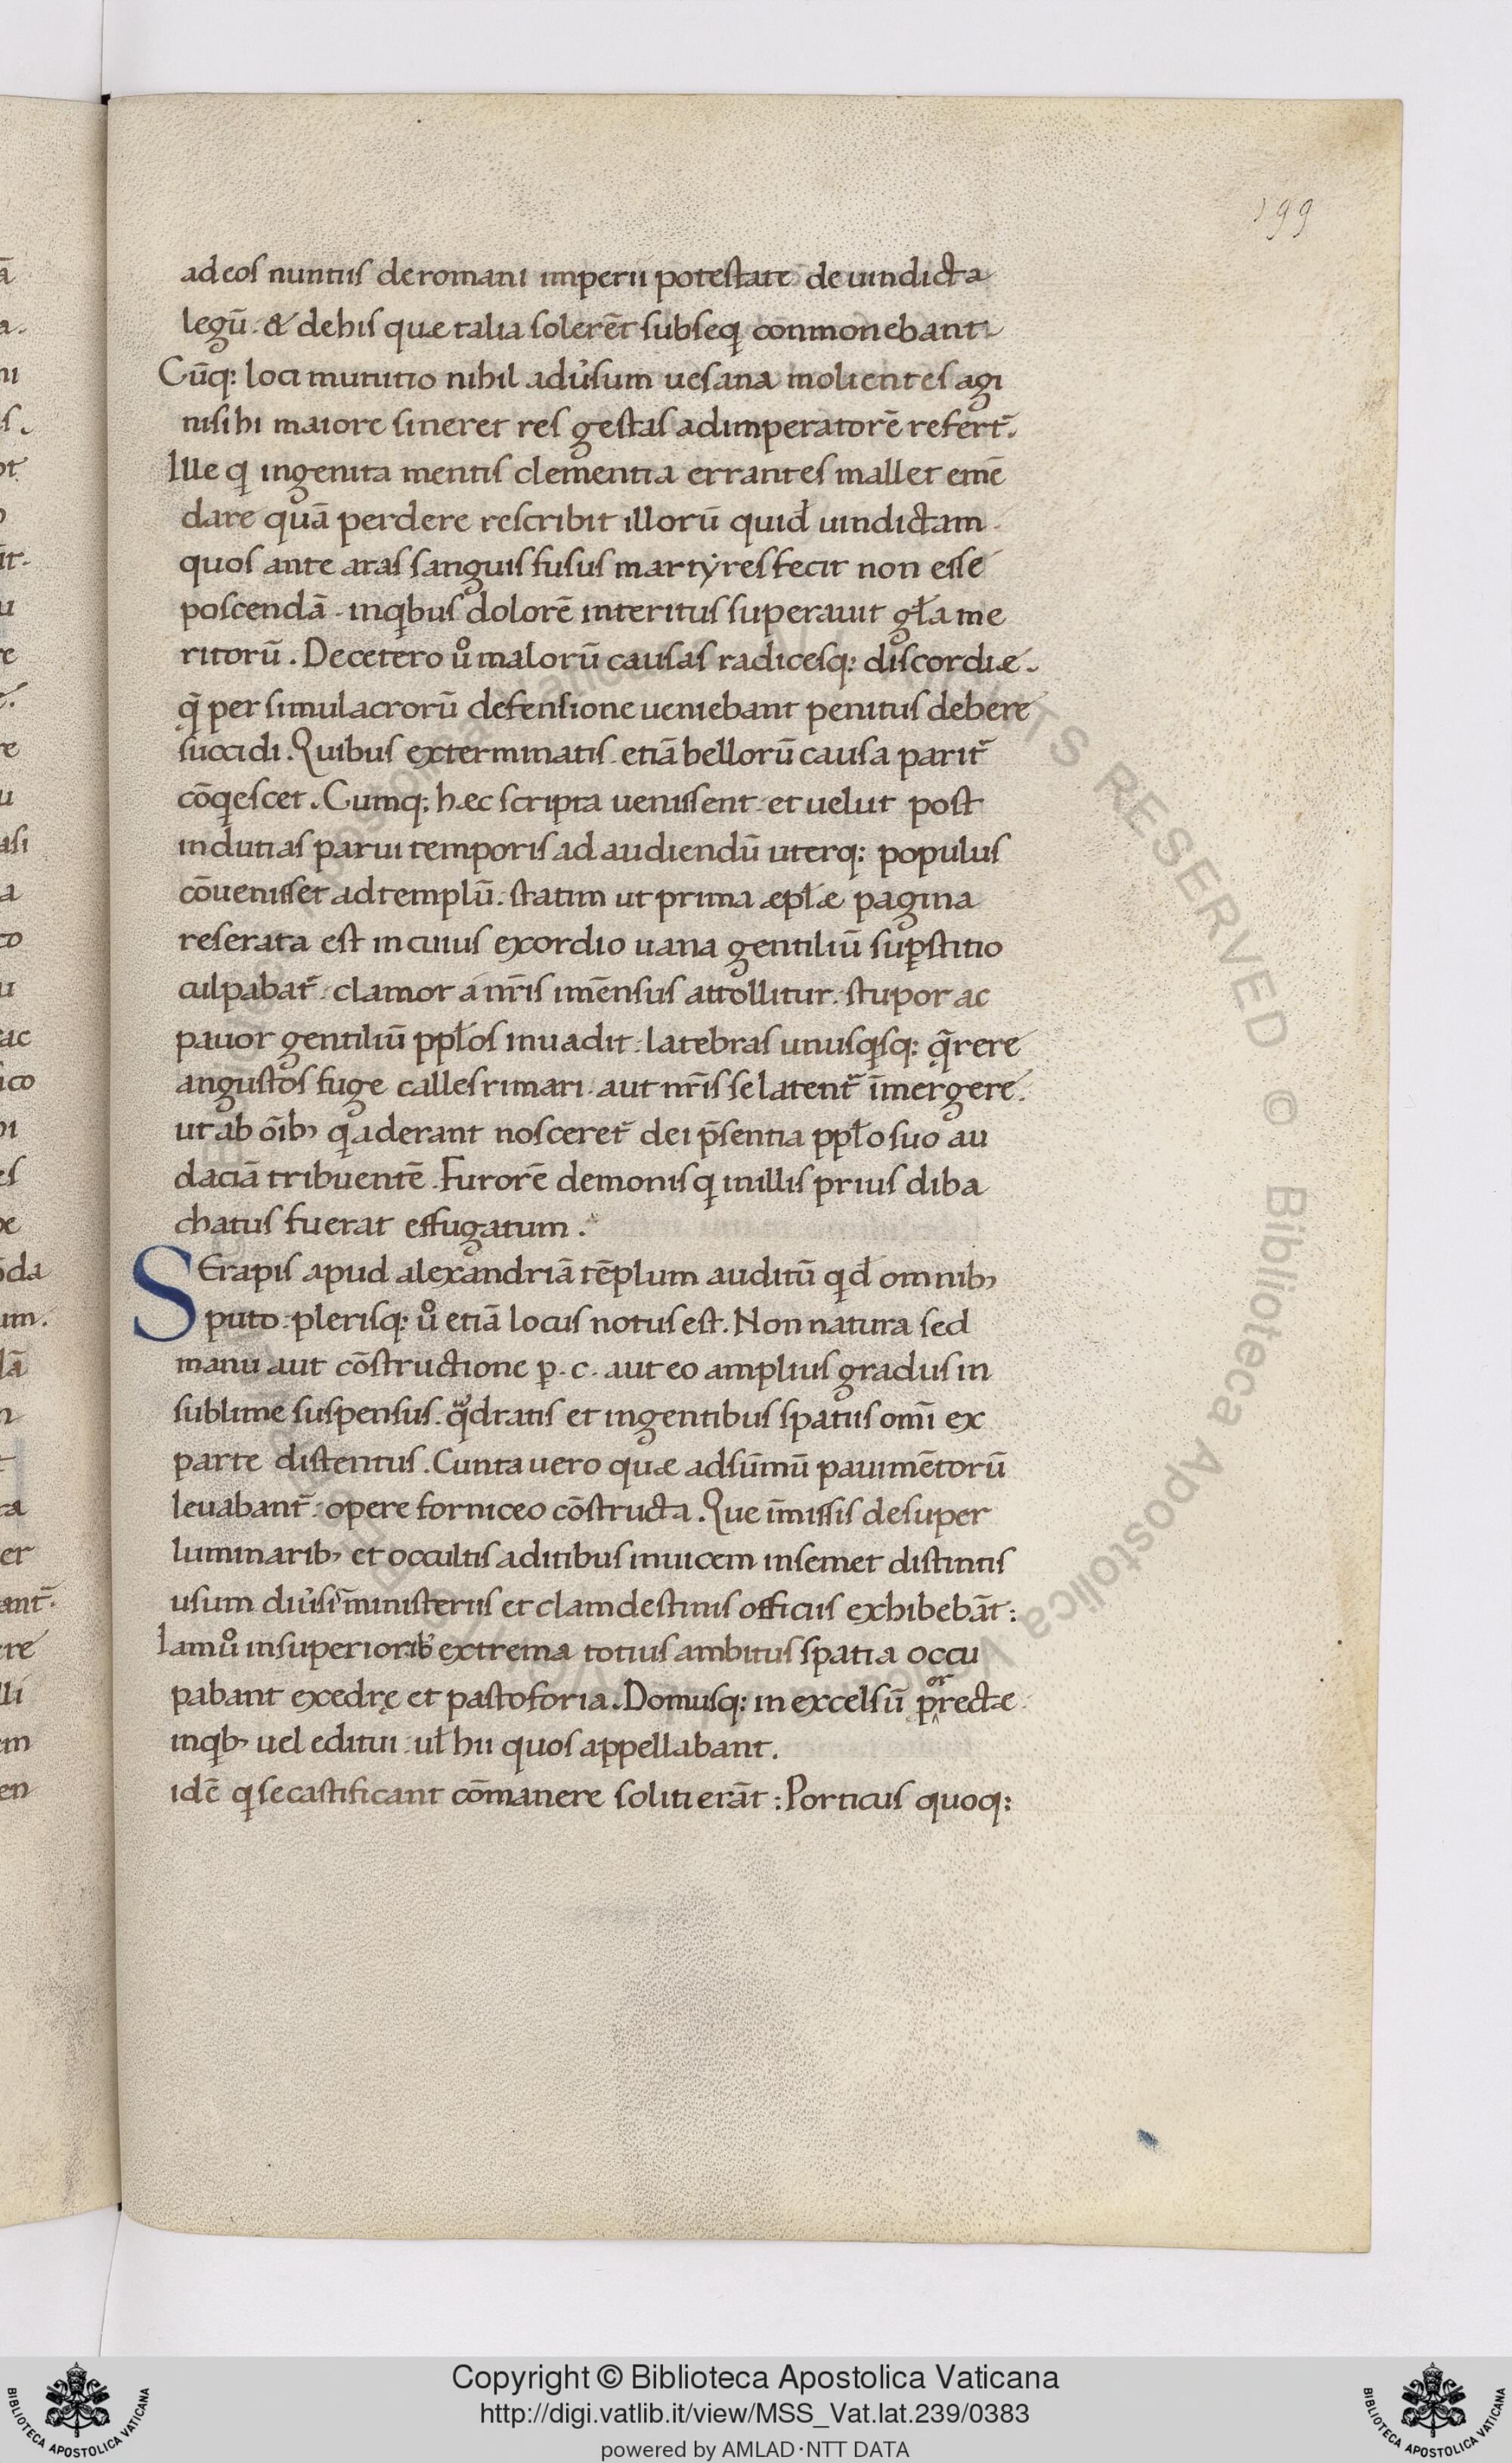 199
ad eos nuntiis de romani imperii potestate de uindicta
legū. & de his quae talia solerēt subseq̨ conmonebant.
Cūq; loci munitio nihil adu̓sum uesana molientes agi
nisi hi maiore sineret res gestas ad imperatorē refert̄.
Ille q̨ ingenita mentis clementia errantes mallet emē
dare quā perdere rescribit illorū quid̄ uindictam
quos ante aras sanguis fusus martẏres fecit non esse
poscendā. inq̨bus dolorē interitus superauit gła me
ritorū. De cetero uͦ malorū causas radicesq; discordiae.
q̄ per simulacrorū defensione ueniebant penitus debere
succidi. Quibus exterminatis. etiā bellorū causa parit̄
cōq̨escet. Cumq; haec scripta uenissent. et uelut post
indutias parui temporis ad audiendū uterq; populus
cōuenisset ad templū. statim ut prima aepłae pagina
reserata est in cuius exordio uana gentiliū suꝑstitio
culpabat̄. clamor a nr̄is imēnsus attollitur. stupor ac
pauor gentiliū ppłos inuadit. latebras unusq̨sq; q̄rere
angustos fuge calles rimari. aut nr̄is se latent̄ īmergere.
ut ab ōib, q̨ aderant nosceret̄ dei p̄sentia ppło suo au
daciā tribuentē. Furorē demonis q̨ in illis prius diba
chatus fuerat effugatum.
SErapis apud alexandriā tēplum auditū q̨d̄ omnib,
puto. plerisq; uͦ etiā locus notus est. Non natura sed
manu aut cōstructione ꝑ. c. aut eo amplius gradus in
sublime suspensus. qͣdratis et ingentibus spatiis omī ex
parte distentus. Cunta uero quae ad sūmū pauimētorū
leuabant̄. opere forniceo cōstructa. Que īmissis desuper
luminarib, et occultis aditibus inuicem in semet distintis
usum diu̓si̅ ministeriis et clamdestinis officiis exhibebāt:
Iamuͦ in superiorib, extrema totius ambitus spatia occu
pabant exedrę et pastoforia. Domusq; in excelsū porrectae
inq̨b, uel editui. uł hii quos appellabant.
idē q̨ se castificant cōmanere soliti erāt: Porticus quoq;
Copyright © Biblioteca Apostolica Vaticana
http://digi.vatlib.it/view/MSS_Vat.lat.239/0383
powered by AMLAD·NTT DATA